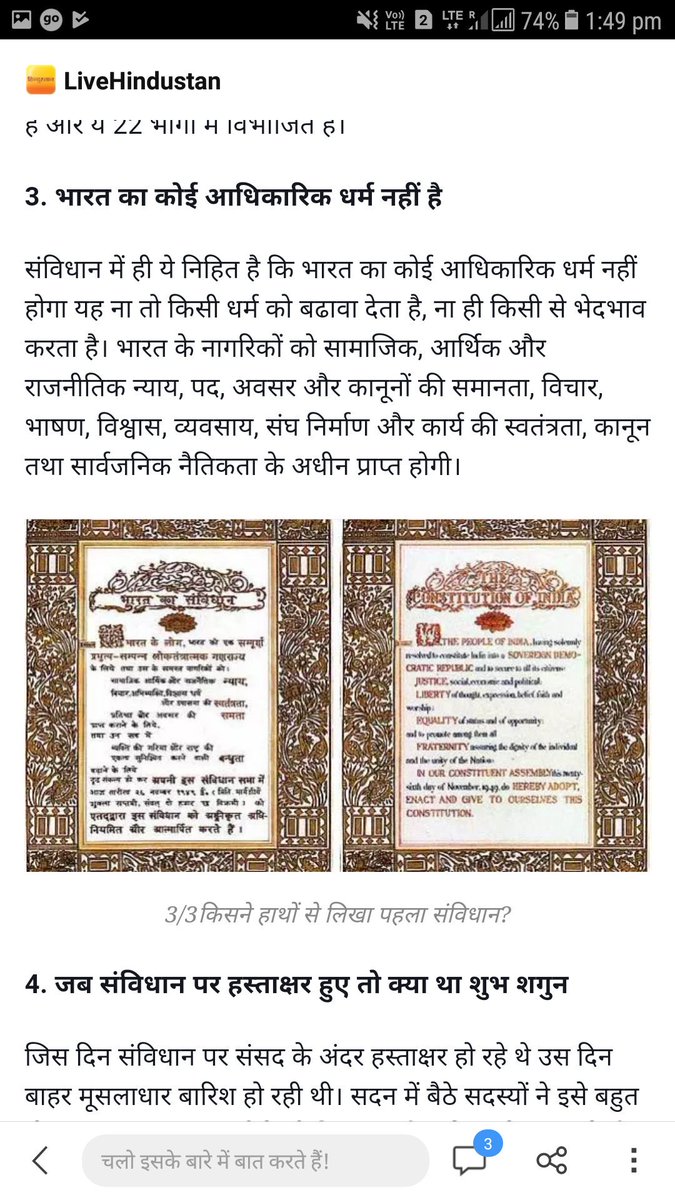 go
Vo))
LTE
2
LTE
R
74%
1:49 pm
हिन्दुस्तान
LiveHindustan
हैं और ये 22 भागों में विभाजित है।
3. भारत का कोई आधिकारिक धर्म नहीं है
संविधान में ही ये निहित है कि भारत का कोई आधिकारिक धर्म नहीं
होगा यह ना तो किसी धर्म को बढावा देता है, ना ही किसी से भेदभाव
करता है। भारत के नागरिकों को सामाजिक, आर्थिक और
राजनीतिक न्याय, पद, अवसर और कानूनों की समानता, विचार,
भाषण, विश्वास, व्यवसाय, संघ निर्माण और कार्य की स्वतंत्रता, कानून
तथा सार्वजनिक नैतिकता के अधीन प्राप्त होगी।
भारत का संविधान
हम भारत के लोग, भारत को एक सम्पूर्ण
प्रभुत्व-सम्पन्न लोकतंत्रात्मक गणराज्य
बनाने के लिये तथा उस के समस्त नागरिकों को:
सामाजिक आर्थिक और राजनैतिक न्याय,
विचार,अभिव्यक्ति,विश्वास धर्म
और उपासना की स्वतंत्रता,
प्रतिष्ठा और अवसर की समता
प्राप्त कराने के लिये,
तथा उन सब में
व्यक्ति की गरिमा और राष्ट्र की
एकता सुनिश्चित करने वाली बन्धुता
बढ़ाने के लिये
दृढ़ संकल्प हो कर अपनी इस संविधान सभा में
आज तारीख २६ नवम्बर १९४९ ई॰ (मिति मार्गशीर्ष
शुक्ला सप्तमी, संवत् दो हजार छ विक्रमी) को
एतद्द्वारा इस संविधान को अङ्गीकृत अधि-
नियमित और आत्मार्पित करते हैं।
THE
CONSTITUTION OF INDIA
WE, THE PEOPLE OF INDIA, having solemnly
resolved to constitute India into a SOVEREIGN DEMO-
CRATIC REPUBLIC and to secure to all its citizens:
JUSTICE, social, economic and political;
LIBERTY of thought, expression, belief, faith and
worship;
EQUALITY of status and of opportunity;
and to promote among them all
FRATERNITY assuring the dignity of the individual
and the unity of the Nation;
IN OUR CONSTITUENT ASSEMBLY this twenty-
sixth day of November, 1949, do HEREBY ADOPT,
ENACT AND GIVE TO OURSELVES THIS
CONSTITUTION.
3/3किसने हाथों से लिखा पहला संविधान?
4. जब संविधान पर हस्ताक्षर हुए तो क्या था शुभ शगुन
जिस दिन संविधान पर संसद के अंदर हस्ताक्षर हो रहे थे उस दिन
बाहर मूसलाधार बारिश हो रही थी। सदन में बैठे सदस्यों ने इसे बहुत
चलो इसके बारे में बात करते हैं!
3